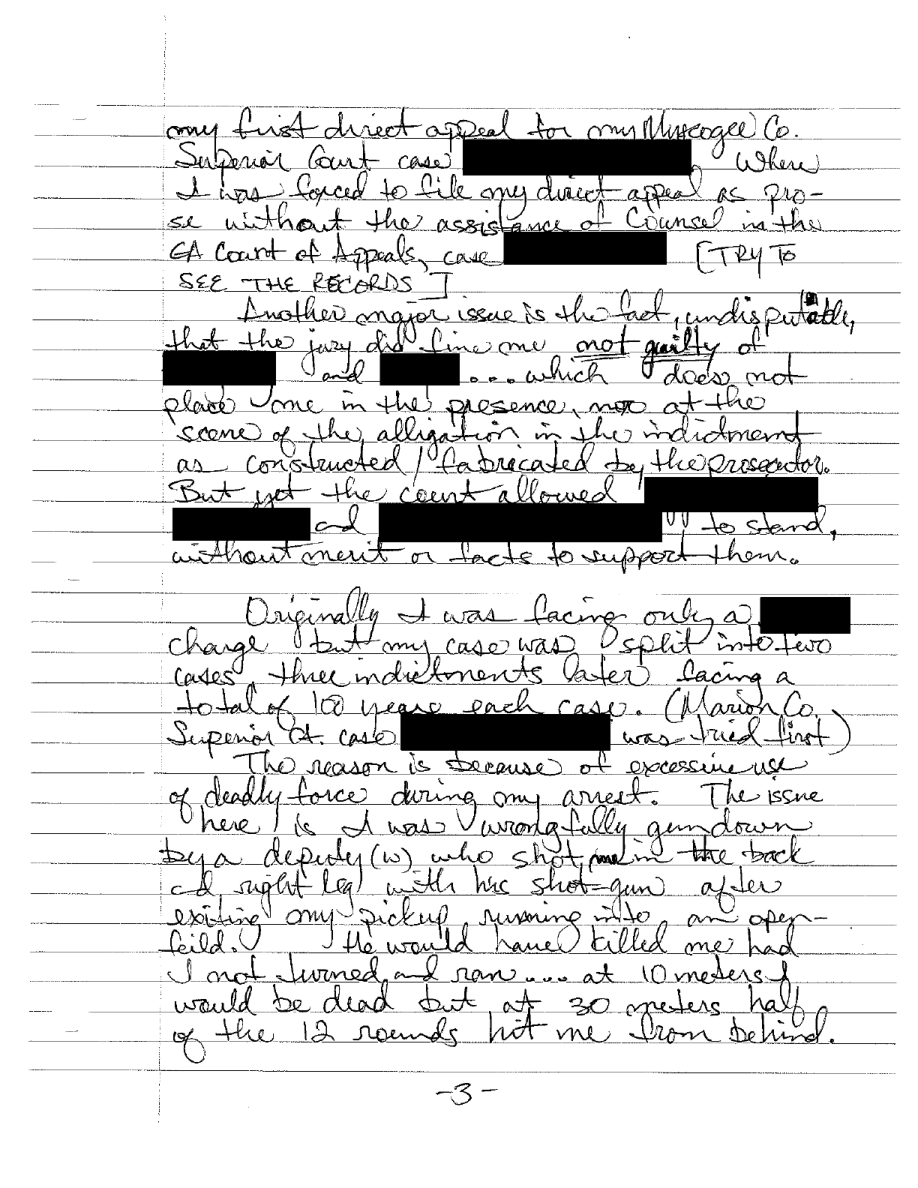 my first direct appeal for my Muscogee Co.
Superior Court case , Where
I was forced to file my direct appeal as pro-
se without the assistance of Counsel in the
GA Court of Appeals, case [TRY TO
SEE THE RECORDS]
Another major issue is the fact, undisputable,
that the jury did fine me not guilty of
and ... which does not
place me in the presence, nor at the
scene of the alligation in the indictment
as constructed/fabricated by the prosecutor.
But yet the court allowed
and to stand,
without merit or facts to support them.
Originally I was facing only a
charge but my case was split into two
cases, three indictments later facing a
total of 100 years each case. (Marion Co.
Superior Ct. case was tried first)
The reason is because of excessive use
of deadly force during my arrest. The issue
here is I was wrongfully gundown
by a deputy (w) who shot me in the back
and right leg with his shot-gun after
exiting my pickup, running into an open-
feild. He would have killed me had
I not turned and ran... at 10 meters I
would be dead but at 30 meters half
of the 12 rounds hit me from behind.
-3-